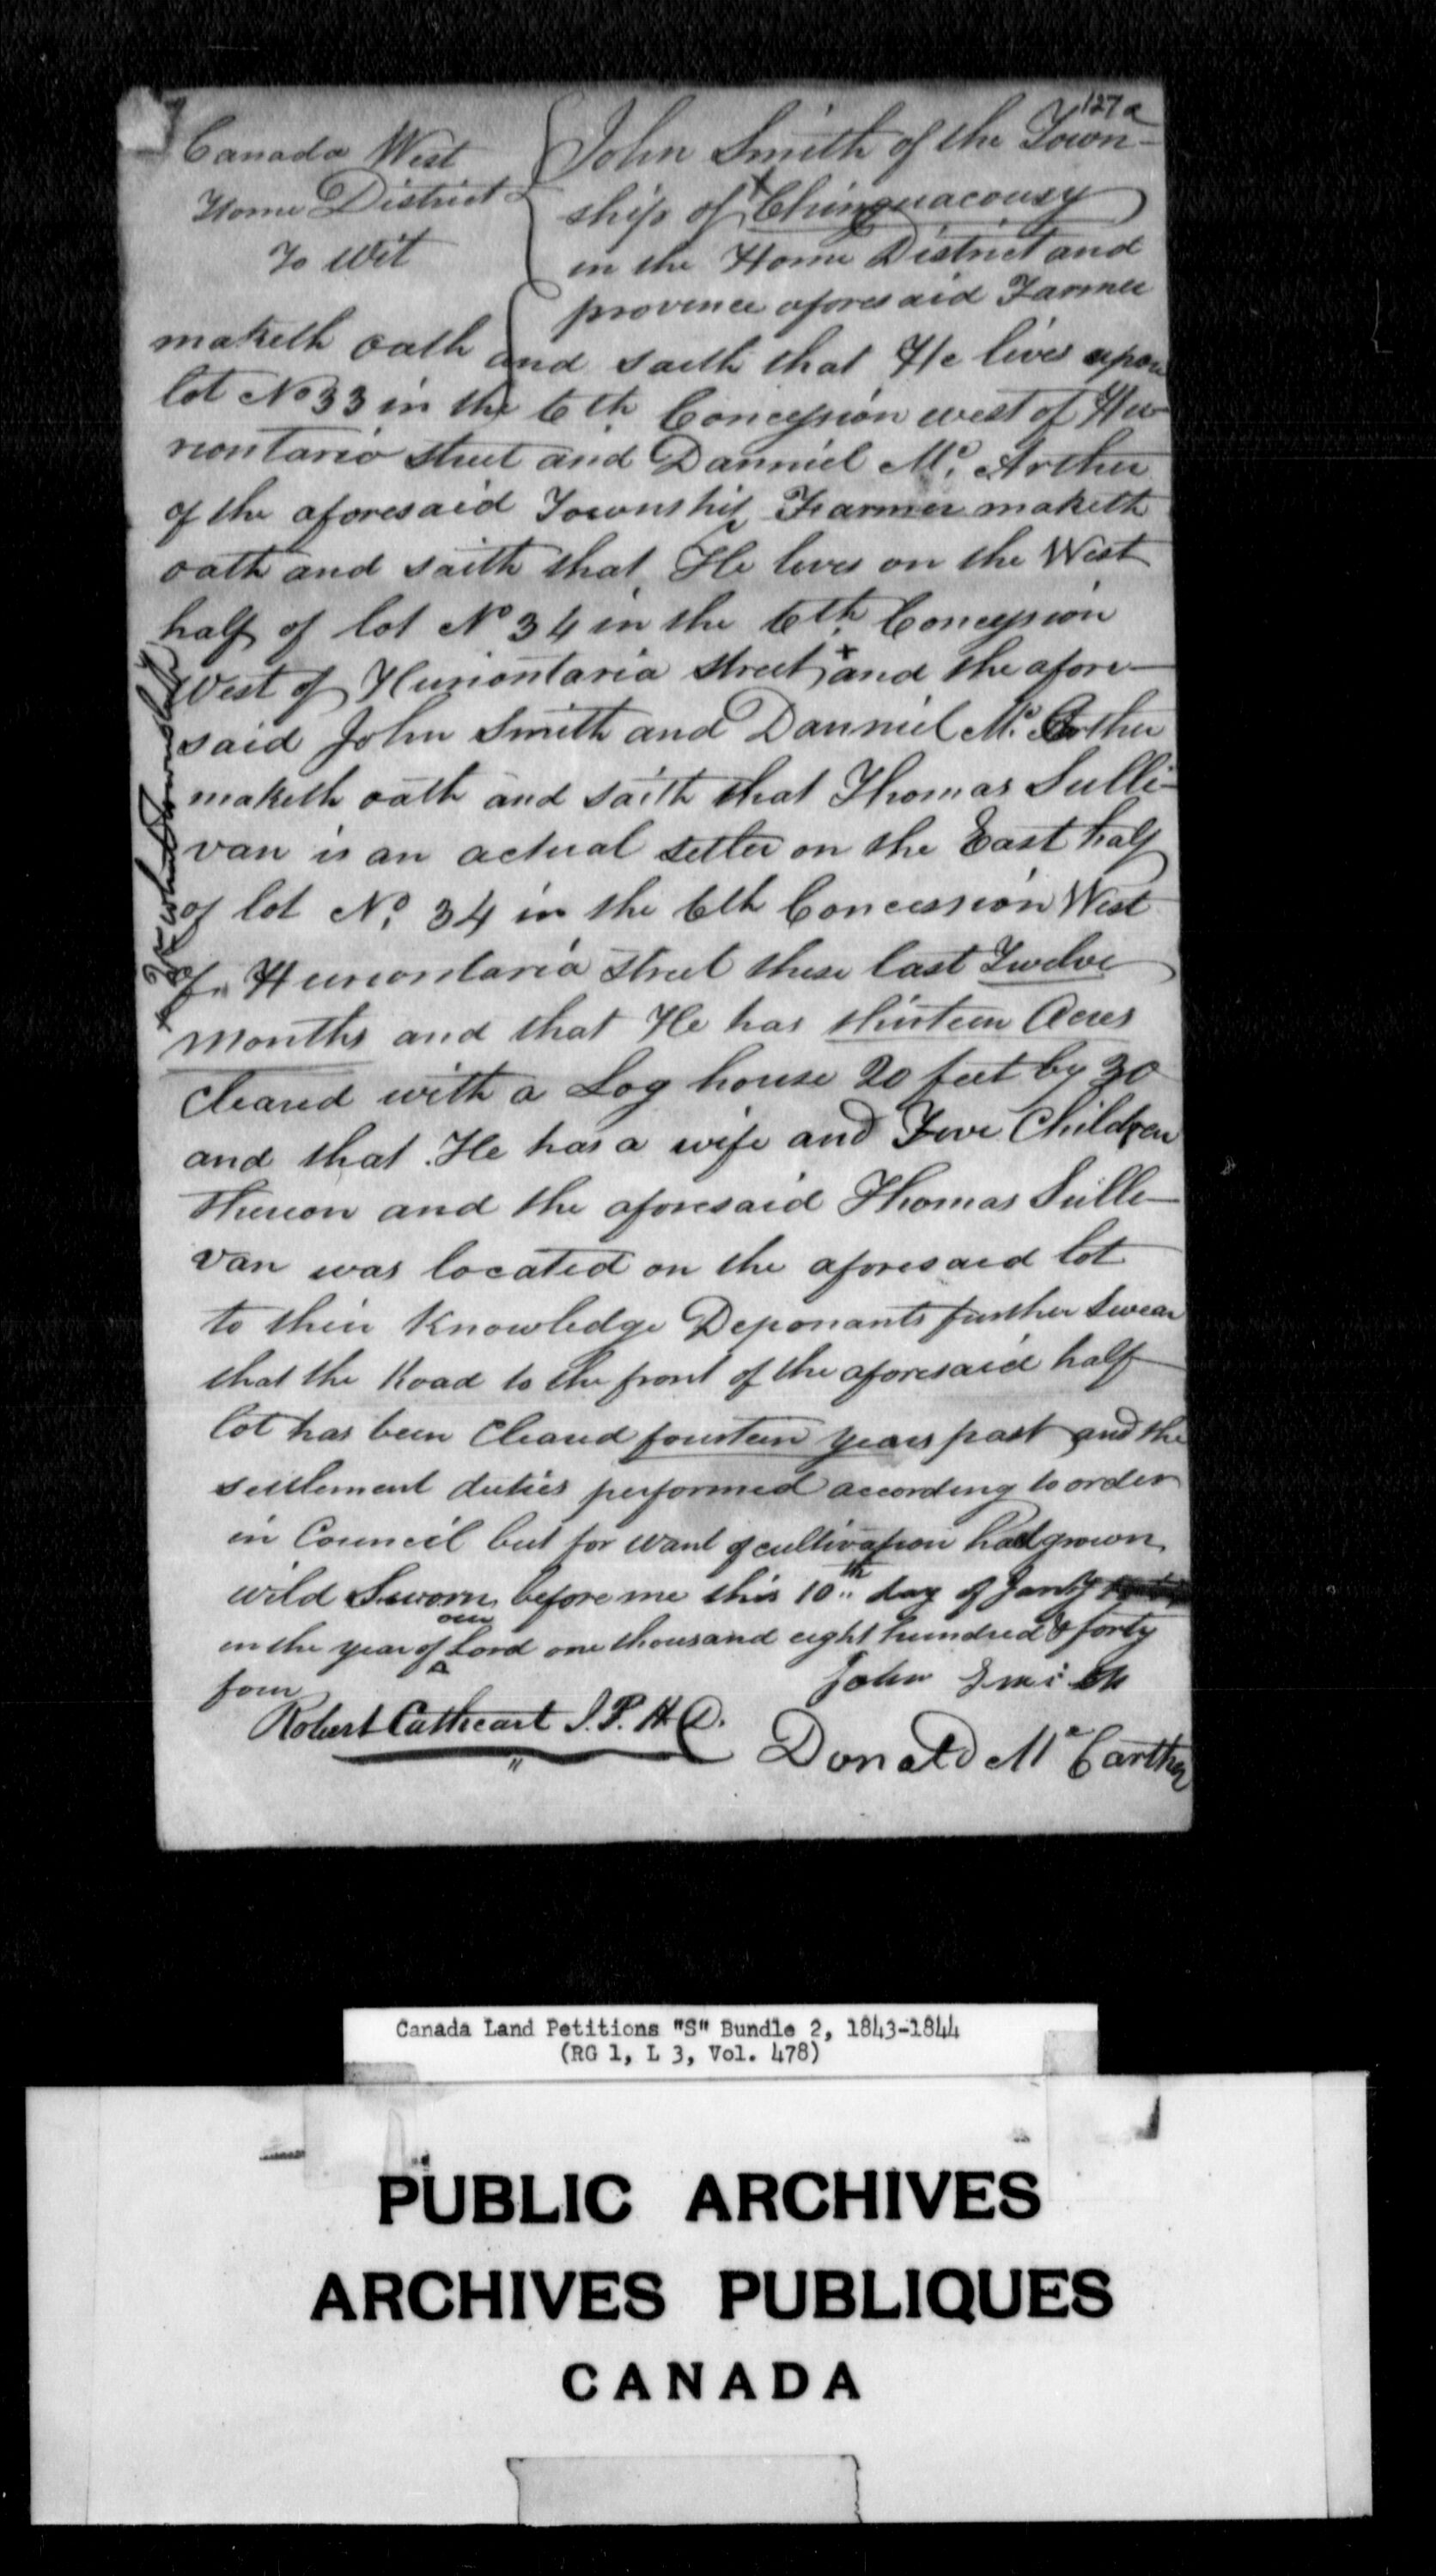 127a
Canada West
Home District
To Wit
John Smith of the Town-
ship of Chinguacousy
in the Home District and
province aforesaid Farmer
maketh oath and saith that He lives upon
lot No 33 in the 6th Concession west of Hu-
rontario street and Danniel Mc. Arther
of the aforesaid Township Farmer maketh
oath and saith that He lives on the West
half of lot No 34 in the 6th Concession
West of Hurontaria street + and the afore-
said John Smith and Danniel Mc. Arther
maketh oath and saith that Thomas Sulli-
van is an actual setler on the East half
of lot No. 34 in the 6th Concession West
of Hurontaria street these last Twelve
months and that He has thirteen Acres
cleared with a Log house 20 feet by 30
and that He has a wife and Five Children
thereon and the aforesaid Thomas Sulle-
van was located on the aforesaid lot
to their Knowledge Deponants further swear
that the Road to the front of the aforesaid half
lot has been Cleared fourteen years past and the
settlement duties performed according to order
in Council but for want of cultivation had grown
wild Sworn before me this 10th day of Jany
in the year of our Lord one thousand eight hundred & forty
four
John Smith
Robert Cathcart J.P. H.D.
Donald Mc Carther
Canada Land Petitions "S" Bundle 2, 1843-1844
(RG 1, L 3, Vol. 478)
PUBLIC ARCHIVES
ARCHIVES PUBLIQUES
CANADA